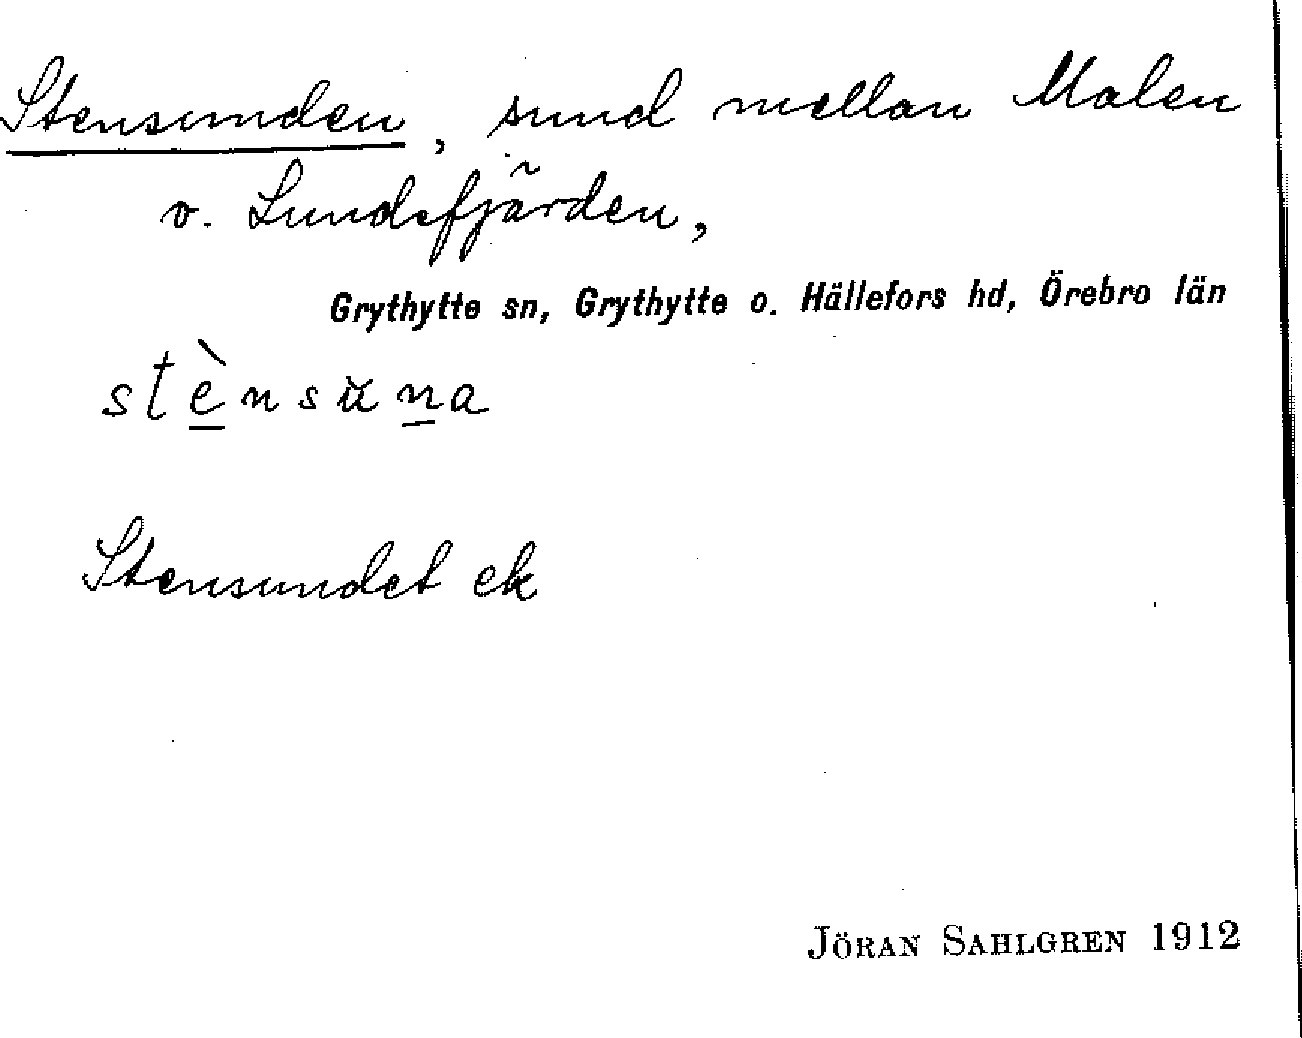 Stensunden, sund mellan Malen
o. Lundsfjärden,
Grythytte sn, Grythytte o. Hällefors hd, Örebro län
stènsŭna
Stensundet ek
JÖRAN SAHLGREN 1912